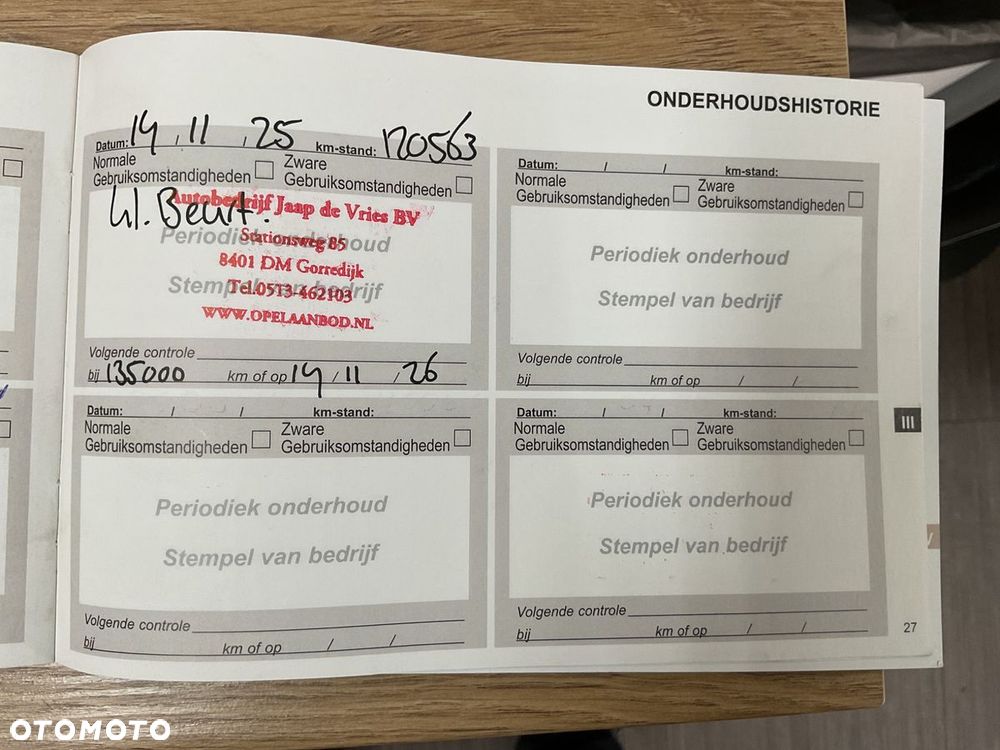 ONDERHOUDSHISTORIE
Datum: 14 / 11 / 25 km-stand: 120563
Normale Gebruiksomstandigheden
Zware Gebruiksomstandigheden
Kl. Beurt.
Autobedrijf Jaap de Vries BV
Periodiek onderhoud
Stationsweg 85
8401 DM Gorredijk
Stempel van bedrijf
Tel.0513-462103
WWW.OPELAANBOD.NL
Volgende controle
bij 135000 km of op 14 / 11 / 26
Datum: / / km-stand:
Normale Gebruiksomstandigheden
Zware Gebruiksomstandigheden
Periodiek onderhoud
Stempel van bedrijf
Volgende controle
bij km of op / /
Datum: / / km-stand:
Normale Gebruiksomstandigheden
Zware Gebruiksomstandigheden
Periodiek onderhoud
Stempel van bedrijf
Volgende controle
bij km of op / /
Datum: / / km-stand:
Normale Gebruiksomstandigheden
Zware Gebruiksomstandigheden
Periodiek onderhoud
Stempel van bedrijf
Volgende controle
bij km of op / /
III
27
OTOMOTO